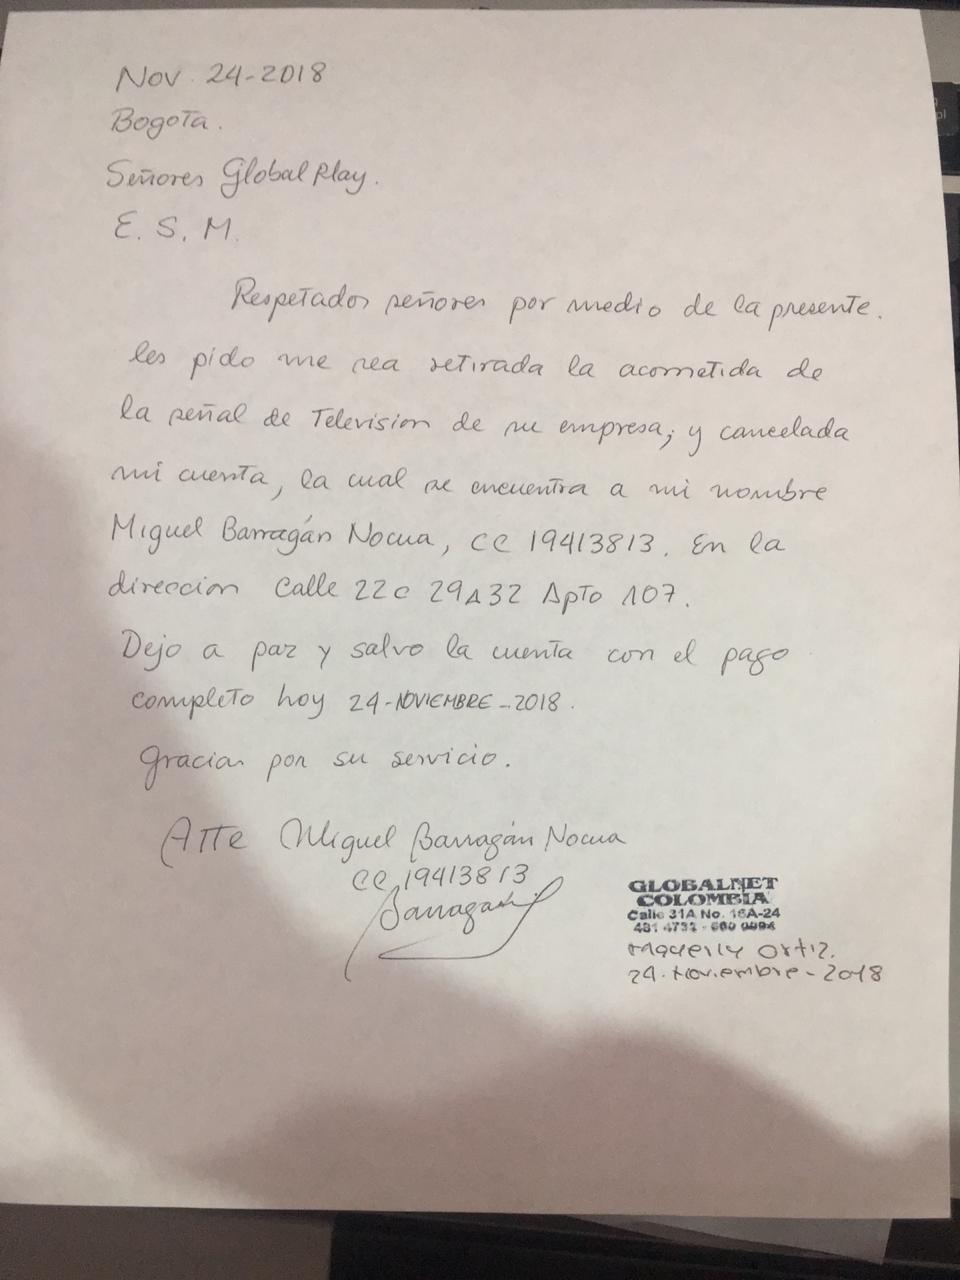 Nov. 24-2018
Bogota.
Señores Global Play.
E. S. M.
Respetados señores por medio de la presente.
les pido me sea retirada la acometida de
la señal de Television de su empresa; y cancelada
mi cuenta, la cual se encuentra a mi nombre
Miguel Barragán Nocua, CC 19413813. En la
direccion Calle 22c 29A32 Apto 107.
Dejo a paz y salvo la cuenta con el pago
completo hoy 24-NOVIEMBRE-2018.
Gracias por su servicio.
Atte Miguel Barragán Nocua
CC 19413813
Barragan
GLOBALNET
COLOMBIA
Calle 31A No. 16A-24
481 4732 -
Ortiz.
24-Noviembre-2018